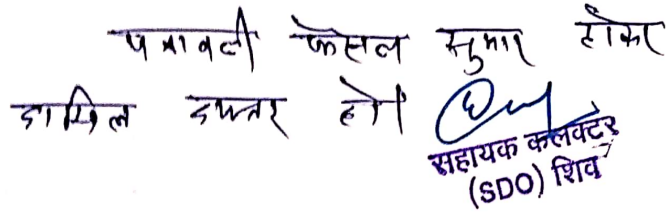 पत्रावली फैसल सुमार होकर
दाखिल दफ्तर हो।
सहायक कलक्टर
(SDO) शिव